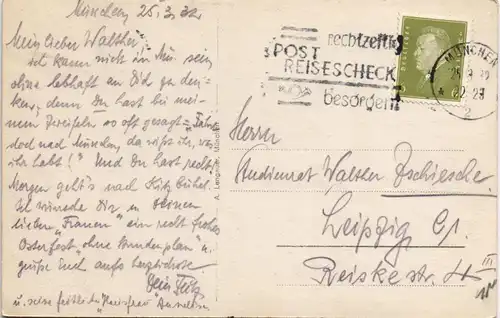 München 25.3.32.
Mein lieber Walther!
ich kann nicht in Mü. sein
ohne lebhaft an Dich zu den-
ken, denn Du hast bei mei-
nem Zweifeln so oft gesagt = "Fahrt
doch nach München, da wißt ihr, was
ihr habt"! Und Du hast recht.
Morgen geht's nach Kitzbühel.
Ich wünsche Dir u. Deinen
lieben "Frauen" ein recht frohes
Osterfest "ohne Stundenplan" u.
grüße Euch aufs herzlichste
Dein Fritz
u. seine
A. Lengauer, München
rechtzeitig
POST
REISESCHECK
besorgen
MÜNCHEN
2
Herrn
Studienrat Walther Zschiesche
Leipzig C1.
Reiskestr. 4 III